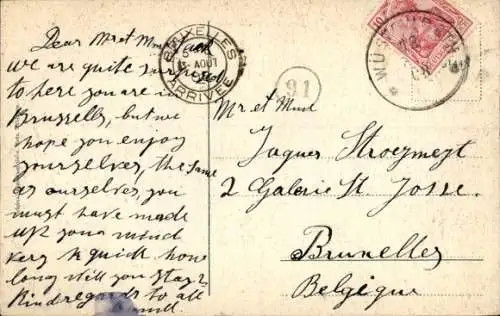 Dear Mr et Mme
we are quite surprised
to here you are in
Brussells, but we
hope you enjoy
yourselves, the same
as ourselves, you
must have made
up your mind
very quick how
long still you stay?
Kind regards to all
BRUXELLES
5
AOUT
ARRIVÉE
91
10
Mr et Mme
Jaques Stroymeyt
2 Galerie St. Josse.
Bruxelles
Belgique